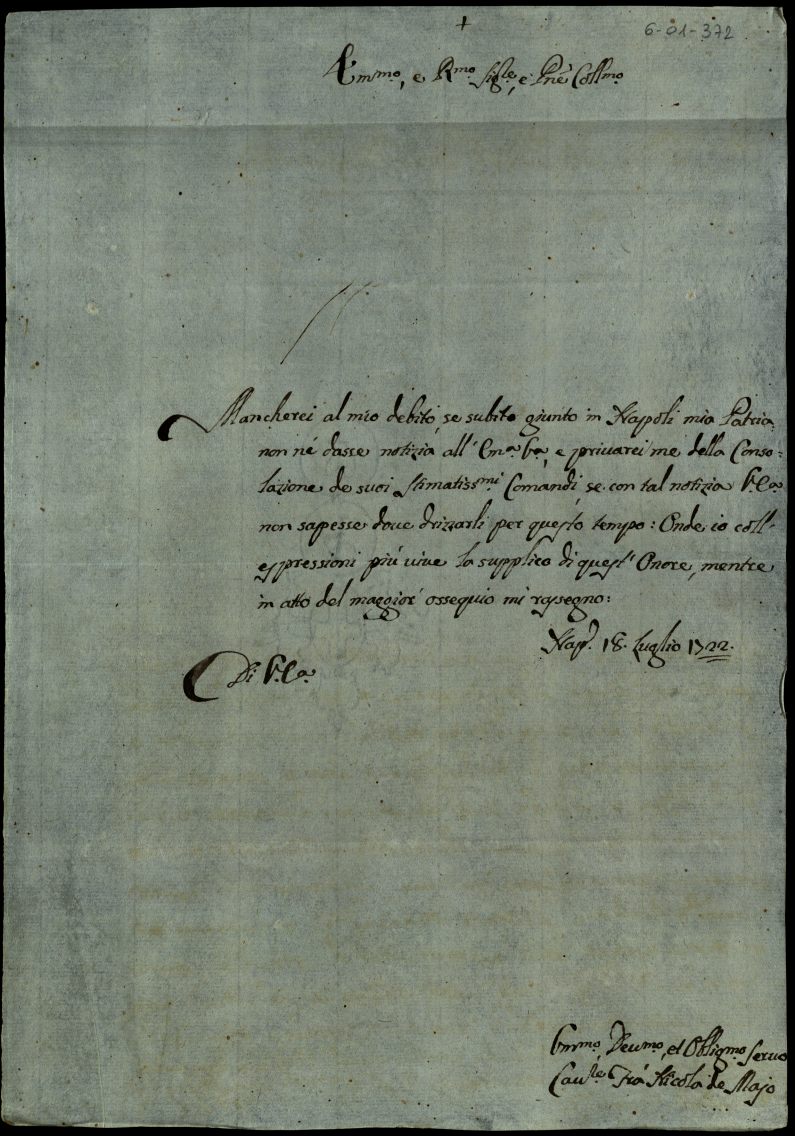 +
6-01-372
Emmo, e Rmo Sigre, e Pne Collmo
Mancherei al mio debito, se subito giunto in Napoli mia Patria
non né dasse notizia all' Emza Va, e privarei me della Conso=
lazione de suoi stimatissmi Comandi, se con tal notizia V: Eza
non sapesse dove drizzarli per questo tempo: Onde io coll'
espressioni piú vive la supplico di quest' Onore, mentre
in atto del maggior ossequio mi rassegno:
Nap. 18. Luglio 1722.
Di V: Eza
Devmo, et Obligmo Servo
Frá Nicola de Majo